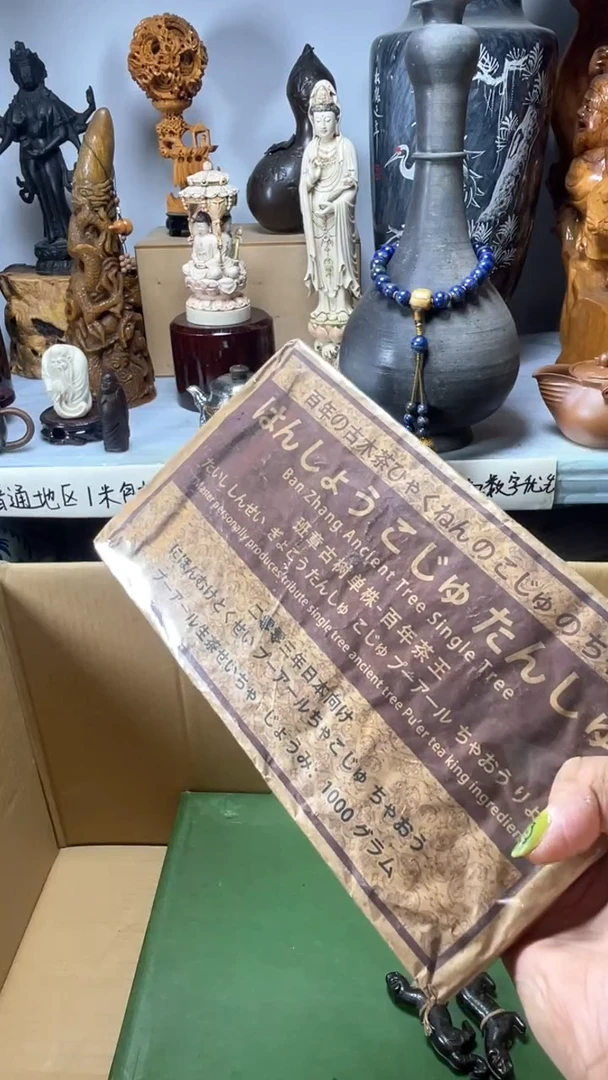 百年の古木茶ひゃくねんのこじゅのち
はんじょうこじゅ たんしゅ
Ban Zhang Ancient Tree Single Tree
班章古樹単株·百年茶王
たいししんせい ぎょどうたんしゅ こじゅ プーアール ちゃおう りょ
Master personally produces tribute single tree ancient tree Pu'er tea king ingredien
三年日本向け
にほんむけとくせい プーアールちゃこじゅ ちゃおう
プーアール生茶せいちゃ/ じょうみ· 1000 グラム
通地区1
数字优先